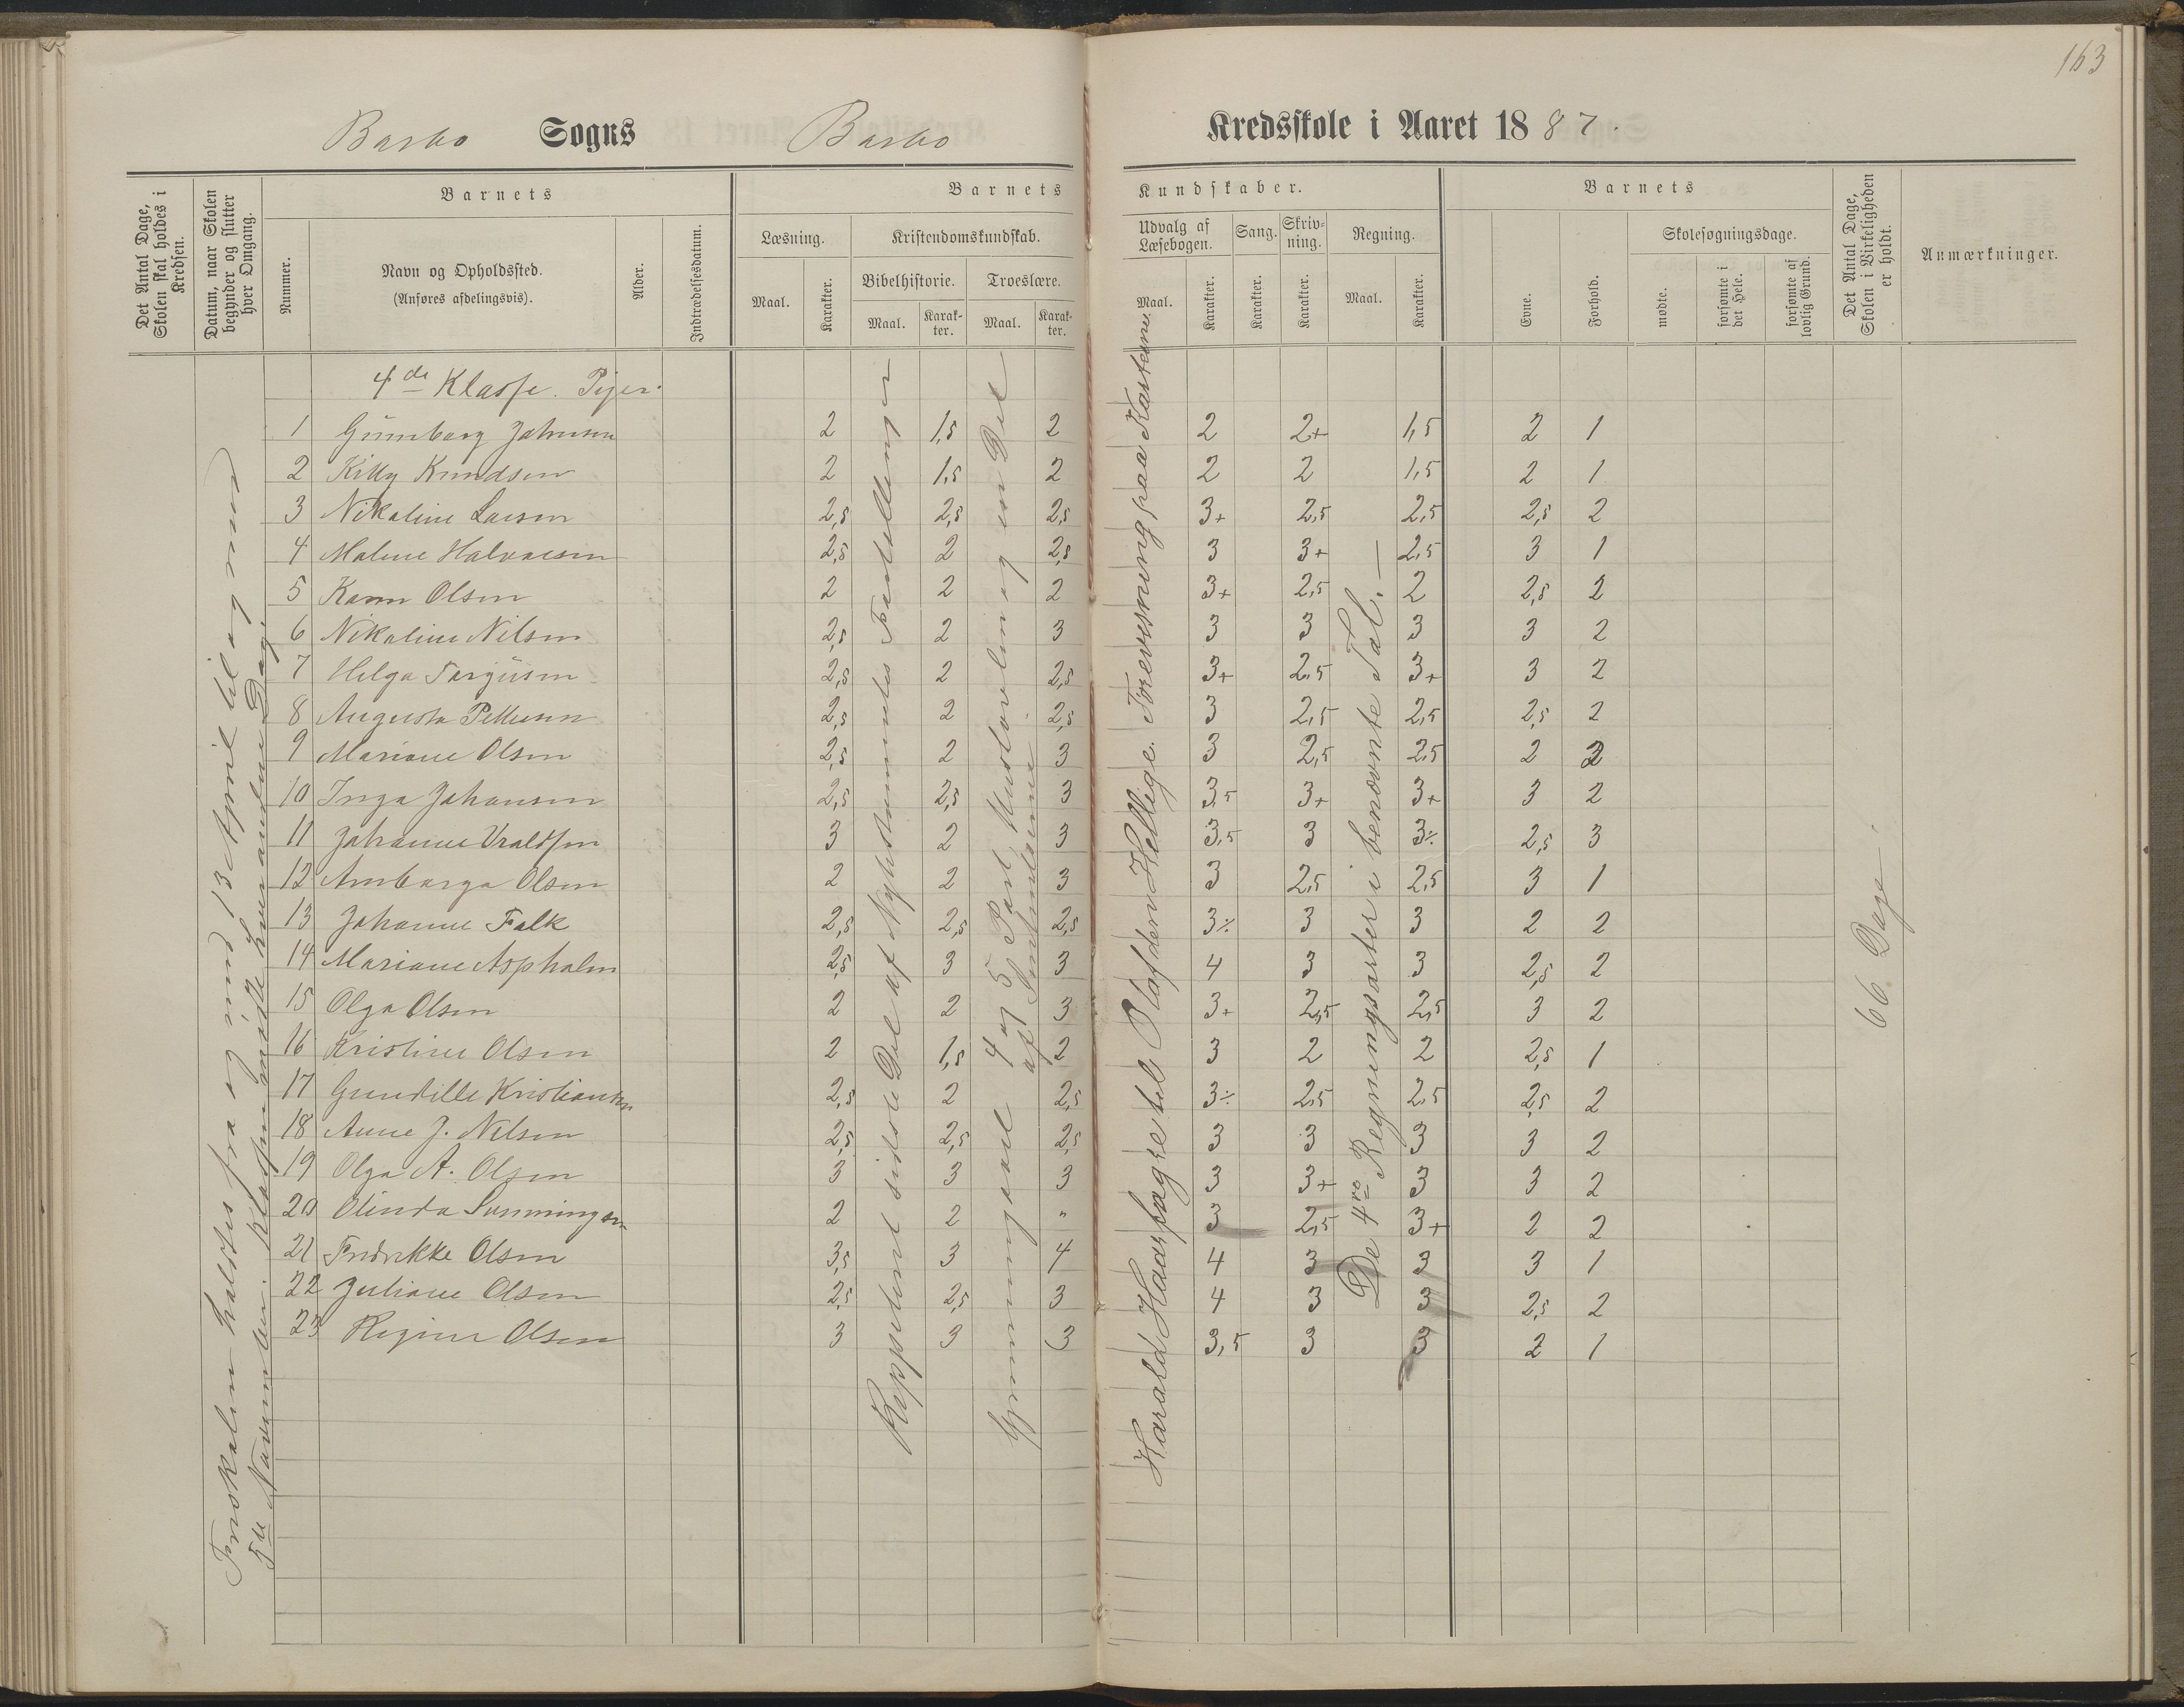 163
Barbo Sogns Barbo Kredsskole i Aaret 1887.
Det Antal Dage, Skolen skal holdes i Kredsen.
Datum, naar Skolen begynder og slutter hver Omgang.
Barnets
Nummer.
Navn og Opholdssted.
(Anføres afdelingsvis).
Alder.
Indtrædelsesdatum.
Barnets Kundskaber.
Læsning.
Maal.
Karakter.
Kristendomskundskab.
Bibelhistorie.
Maal.
Karakter.
Troeslære.
Maal.
Karakter.
Udvalg af Læsebogen.
Maal.
Karakter.
Sang.
Karakter.
Skrivning.
Karakter.
Regning.
Maal.
Karakter.
Barnets
Evne.
Forhold.
Skolesøgningsdage.
mødte.
forsømte i det Hele.
forsømte af lovlig Grund.
Det Antal Dage, Skolen i Virkeligheden er holdt.
Anmærkninger.
4de Klasse. Piger.
1 Gunborg Johnsen 2 1,5 2 2 2+ 1,5 2 1
2 Kitty Knudsen 2 1,5 2 2 2 1,5 2 1
3 Nikoline Larsen 2,5 2,5 2,5 3+ 2,5 2,5 2,5 2
4 Malene Halvorsen 2,5 2 2,5 3 3+ 2,5 3 1
5 Karen Olsen 2 2 2 3+ 2,5 2 2,5 2
6 Nikoline Nilsen 2,5 2 3 3 3 3 3 2
7 Helga Torgusen 2,5 2 2,5 3+ 2,5 3+ 3 2
8 Augusta Pettersen 2,5 2 2,5 3 2,5 2,5 2,5 2
9 Mariane Olsen 2,5 2 3 3 2,5 2,5 2 2
10 Inga Johansen 2,5 2,5 3 3,5 3+ 3+ 3 2
11 Johanne Uraldsen 3 2 3 3,5 3 3÷ 2,5 3
12 Amborga Olsen 2 2 3 3 2,5 2,5 3 1
13 Johanne Falk 2,5 2,5 2,5 3÷ 3 3 2 2
14 Mariane Aspholm 2,5 3 3 4 3 3 2,5 2
15 Olga Olsen 2 2 3 3+ 2,5 2,5 3 2
16 Kristine Olsen 2 1,5 2 3 2 2 2,5 1
17 Gundille Kristiansen 2,5 2 2,5 3÷ 2,5 2,5 2,5 2
18 Anne J. Nilsen 2,5 2,5 2,5 3 3 3 3 2
19 Olga A. Olsen 3 3 3 3 3+ 3 3 2
20 Olinda Sunningsen 2 2 " 3 2,5 3+ 2 2
21 Fredrikke Olsen 3,5 3 4 4 3 3 3 1
22 Juliane Olsen 2,5 2,5 3 4 3 3 2,5 2
23 Regine Olsen 3 3 3 3,5 3 3 2 1
holdtes fra og med 13 April til og med
5te November. Klassen mødte hver anden Dag.
Reppeteret sidste Del af Nytestamentes Fortællinger
Gjennemgaaet 4 og 5 Part, Husta­vlen og en Del
af
Harald Haarfagre til Olaf den Hellige. Forevisning paa Karterne.
De 4re Regningsarter i benævnte Tal. —
66 Dage.